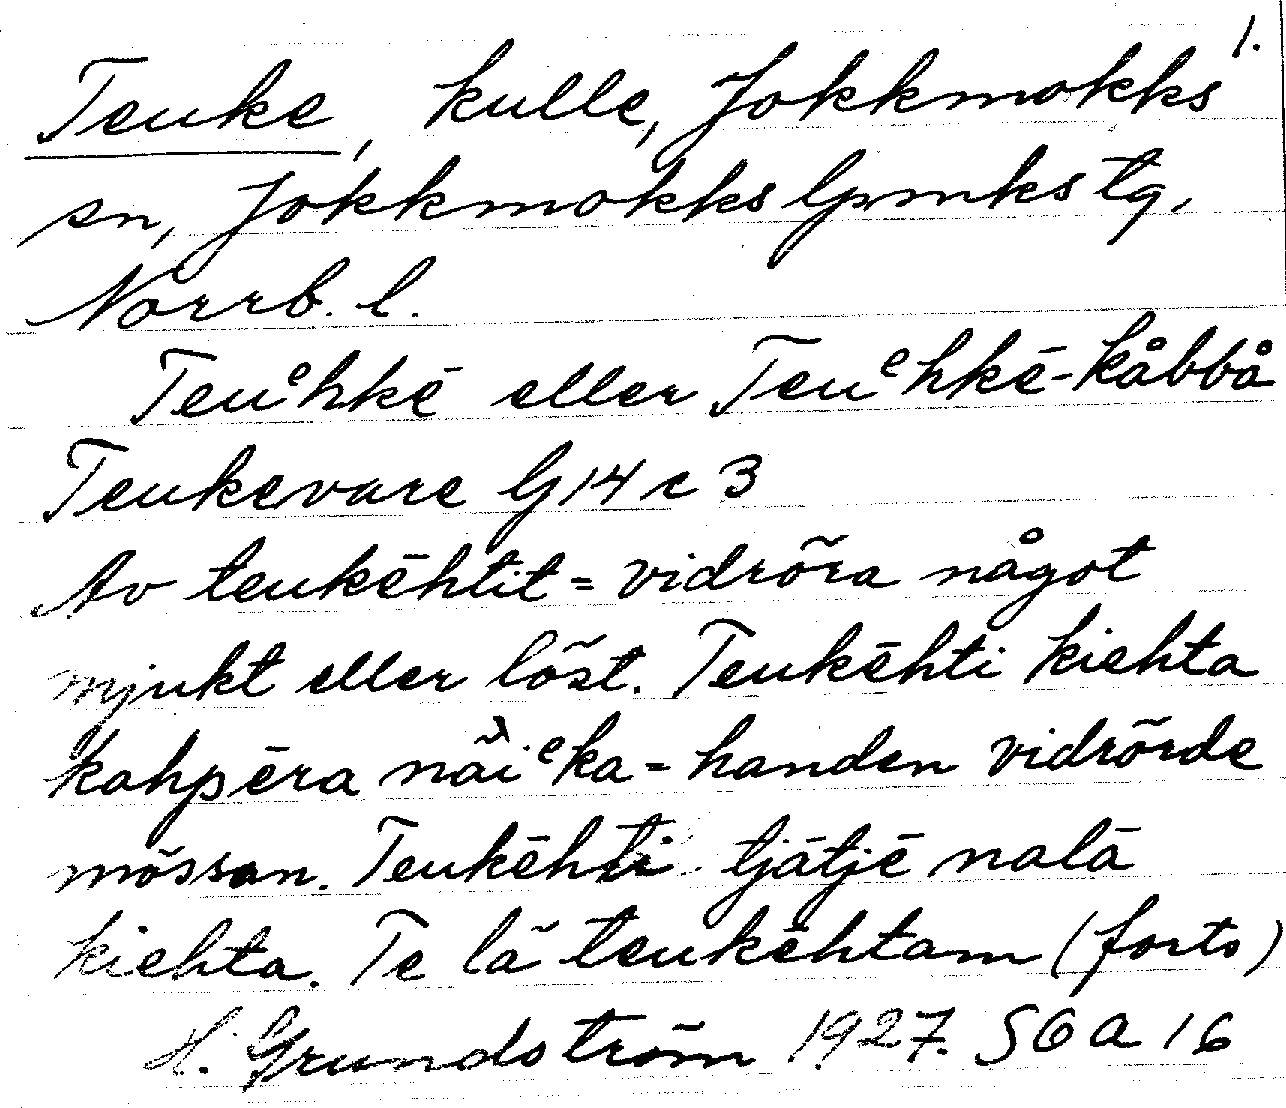 1.
Teuke, kulle, Jokkmokks
sn, Jokkmokks lpmks tg,
Norrb. l.
Teuᵉhkē eller Teuᵉhkē-kåbbå
Teukevare G 14 c 3
Av teukēhtit = vidröra något
mjukt eller löst. Teukēhti kiehta
kahpēra näiᵉka - handen vidrörde
mössan. Teukēhti tjātjē nalā
kiehta. Te lä teukēhtam (forts)
H. Grundström 1927. SOA 16